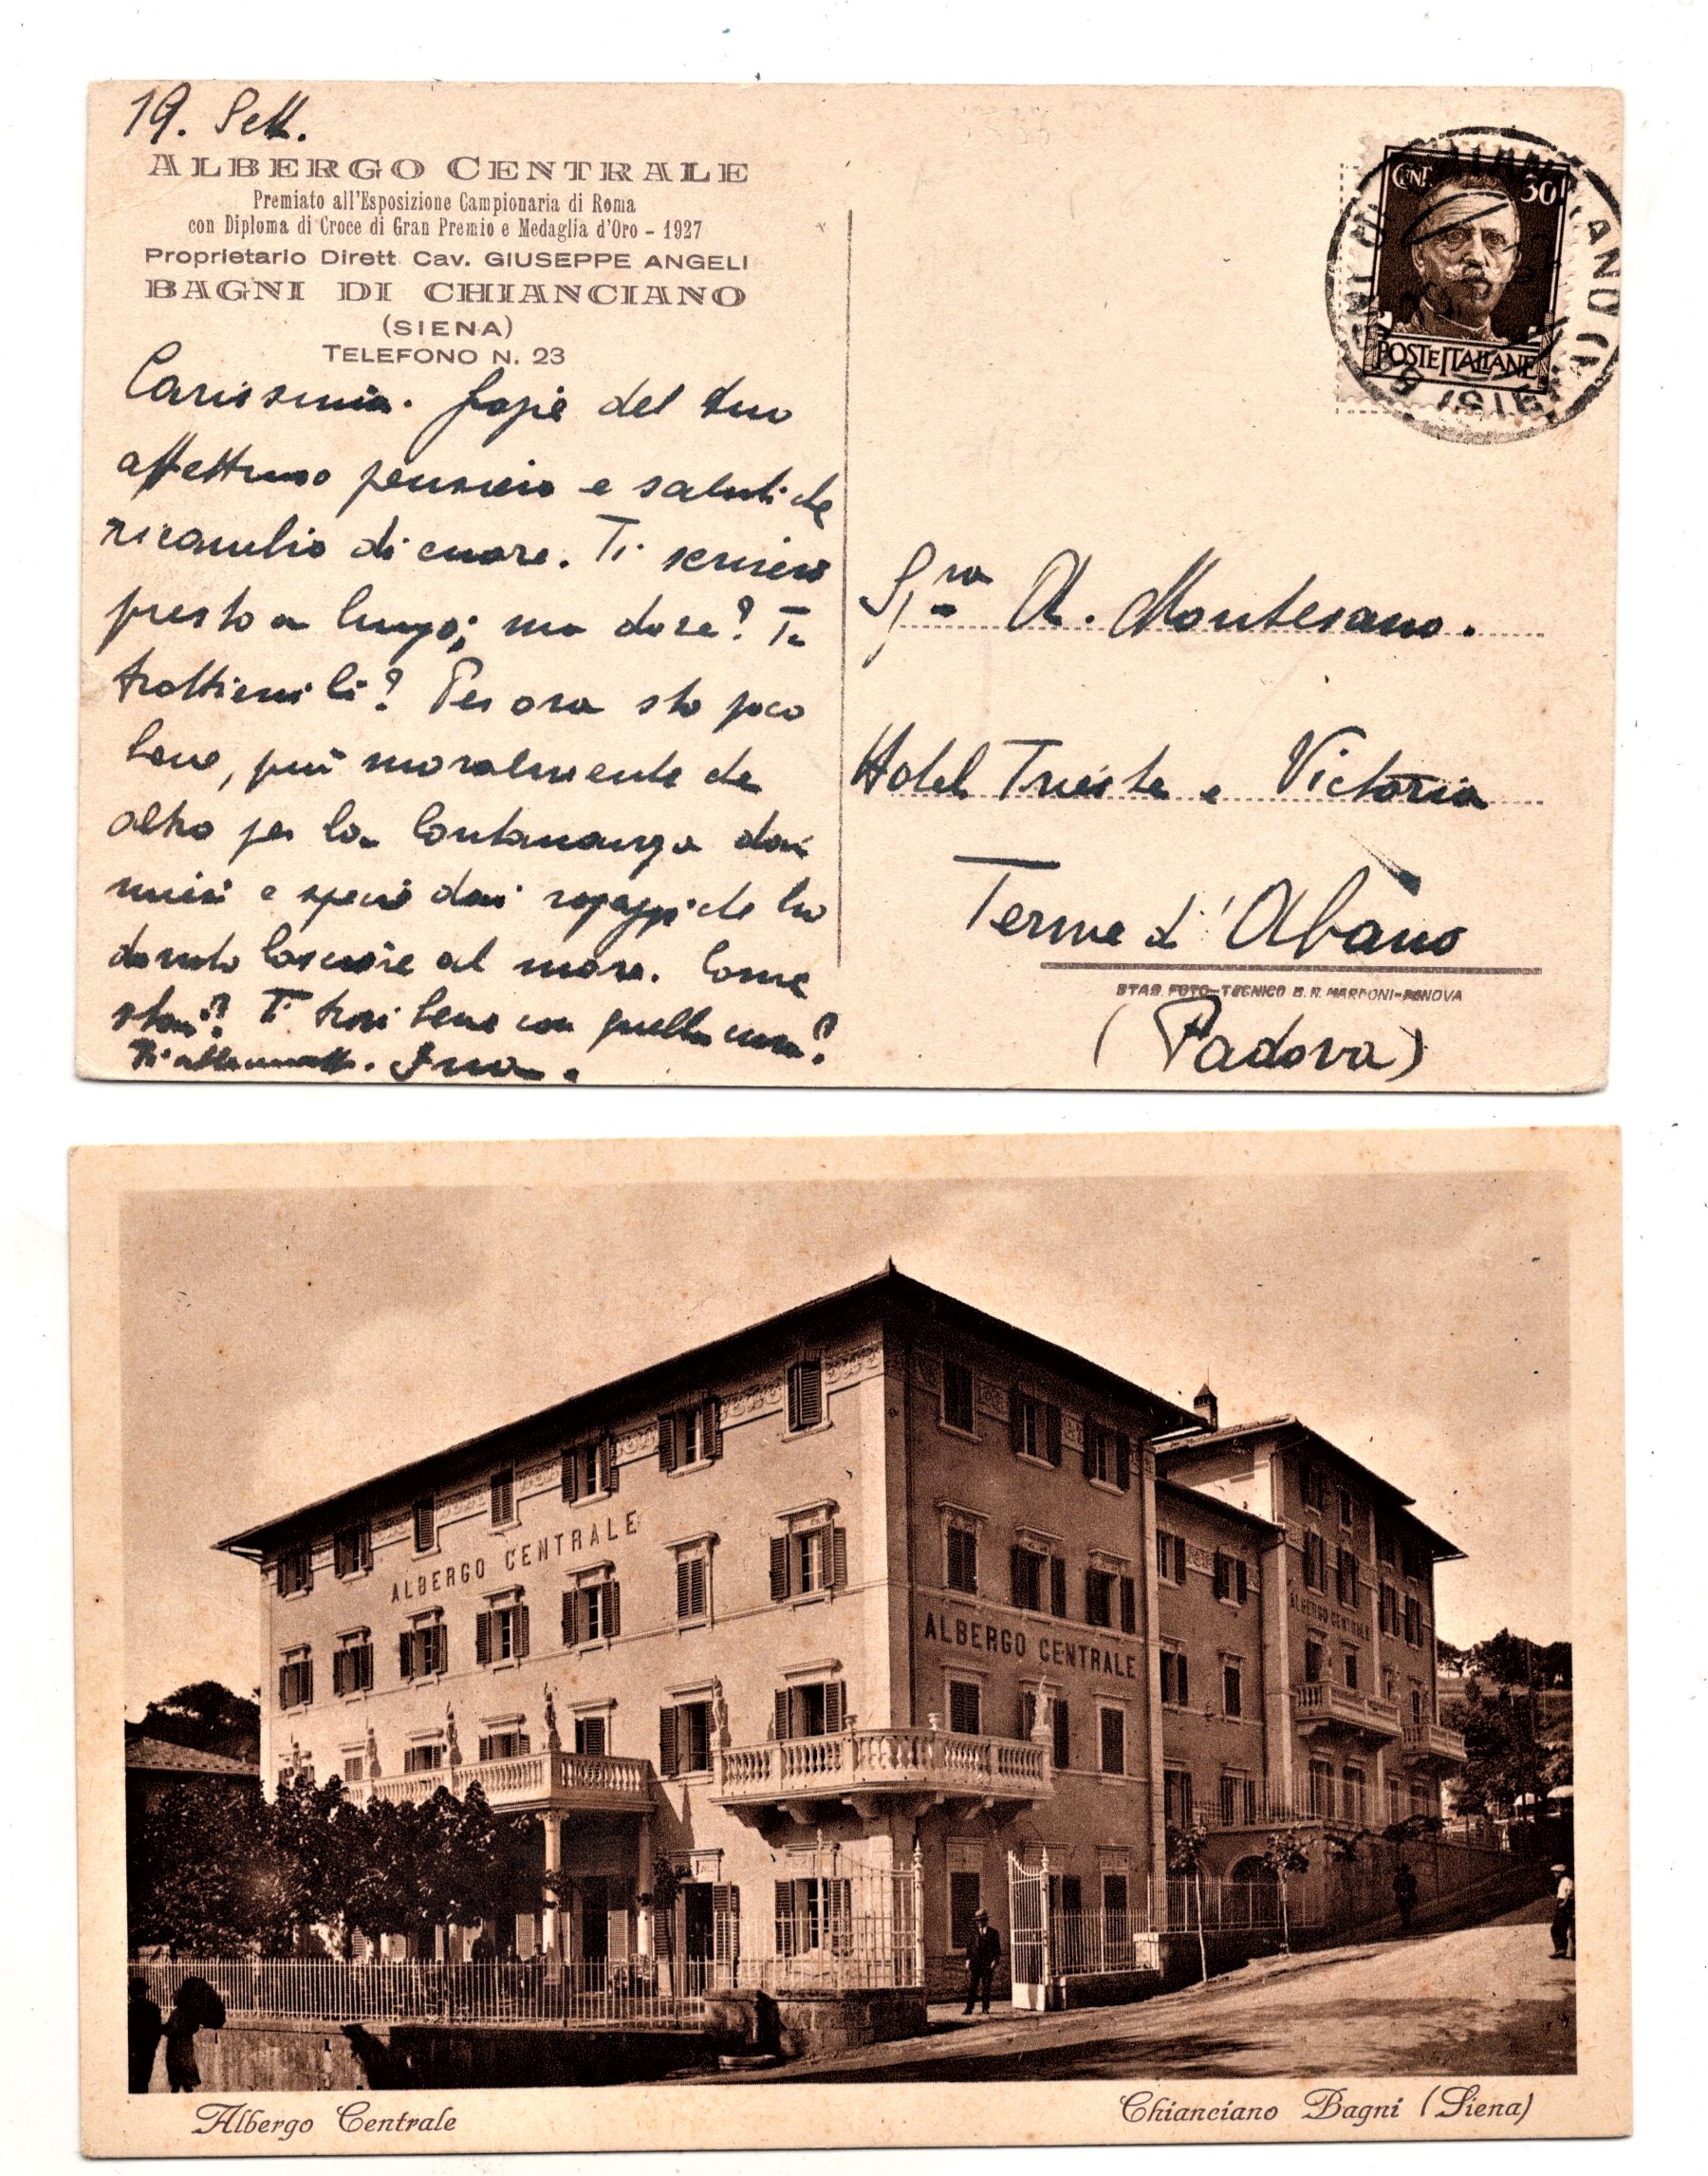 19. Sett.
ALBERGO CENTRALE
Premiato all'Esposizione Campionaria di Roma
con Diploma di Croce di Gran Premio e Medaglia d'Oro - 1927
Proprietario Dirett. Cav. GIUSEPPE ANGELI
BAGNI DI CHIANCIANO
(SIENA)
TELEFONO N. 23
Carissima. Grazie del tuo
affettuoso pensiero e saluti che
ricambio di cuore. Ti scriverò
presto a lungo; ma dove? Ti
trattieni lì? Per ora sto poco
bene, più moralmente che
altro per la lontananza dai
miei e specie dai ragazzi che ho
dovuto lasciare al mare. Come
stai? Ti trovi bene con quella cura?
Ti abbraccio.
CENT 30
POSTE ITALIANE
BAGNI DI CHIANCIANO (SIENA)
Sig.ra A. Montesano.
Hotel Trieste e Victoria
Terme d'Abano
STAB. FOTO-TECNICO G. R. MARCONI-GENOVA
(Padova)
ALBERGO CENTRALE
ALBERGO CENTRALE
ALBERGO CENTRALE
Albergo Centrale
Chianciano Bagni (Siena)